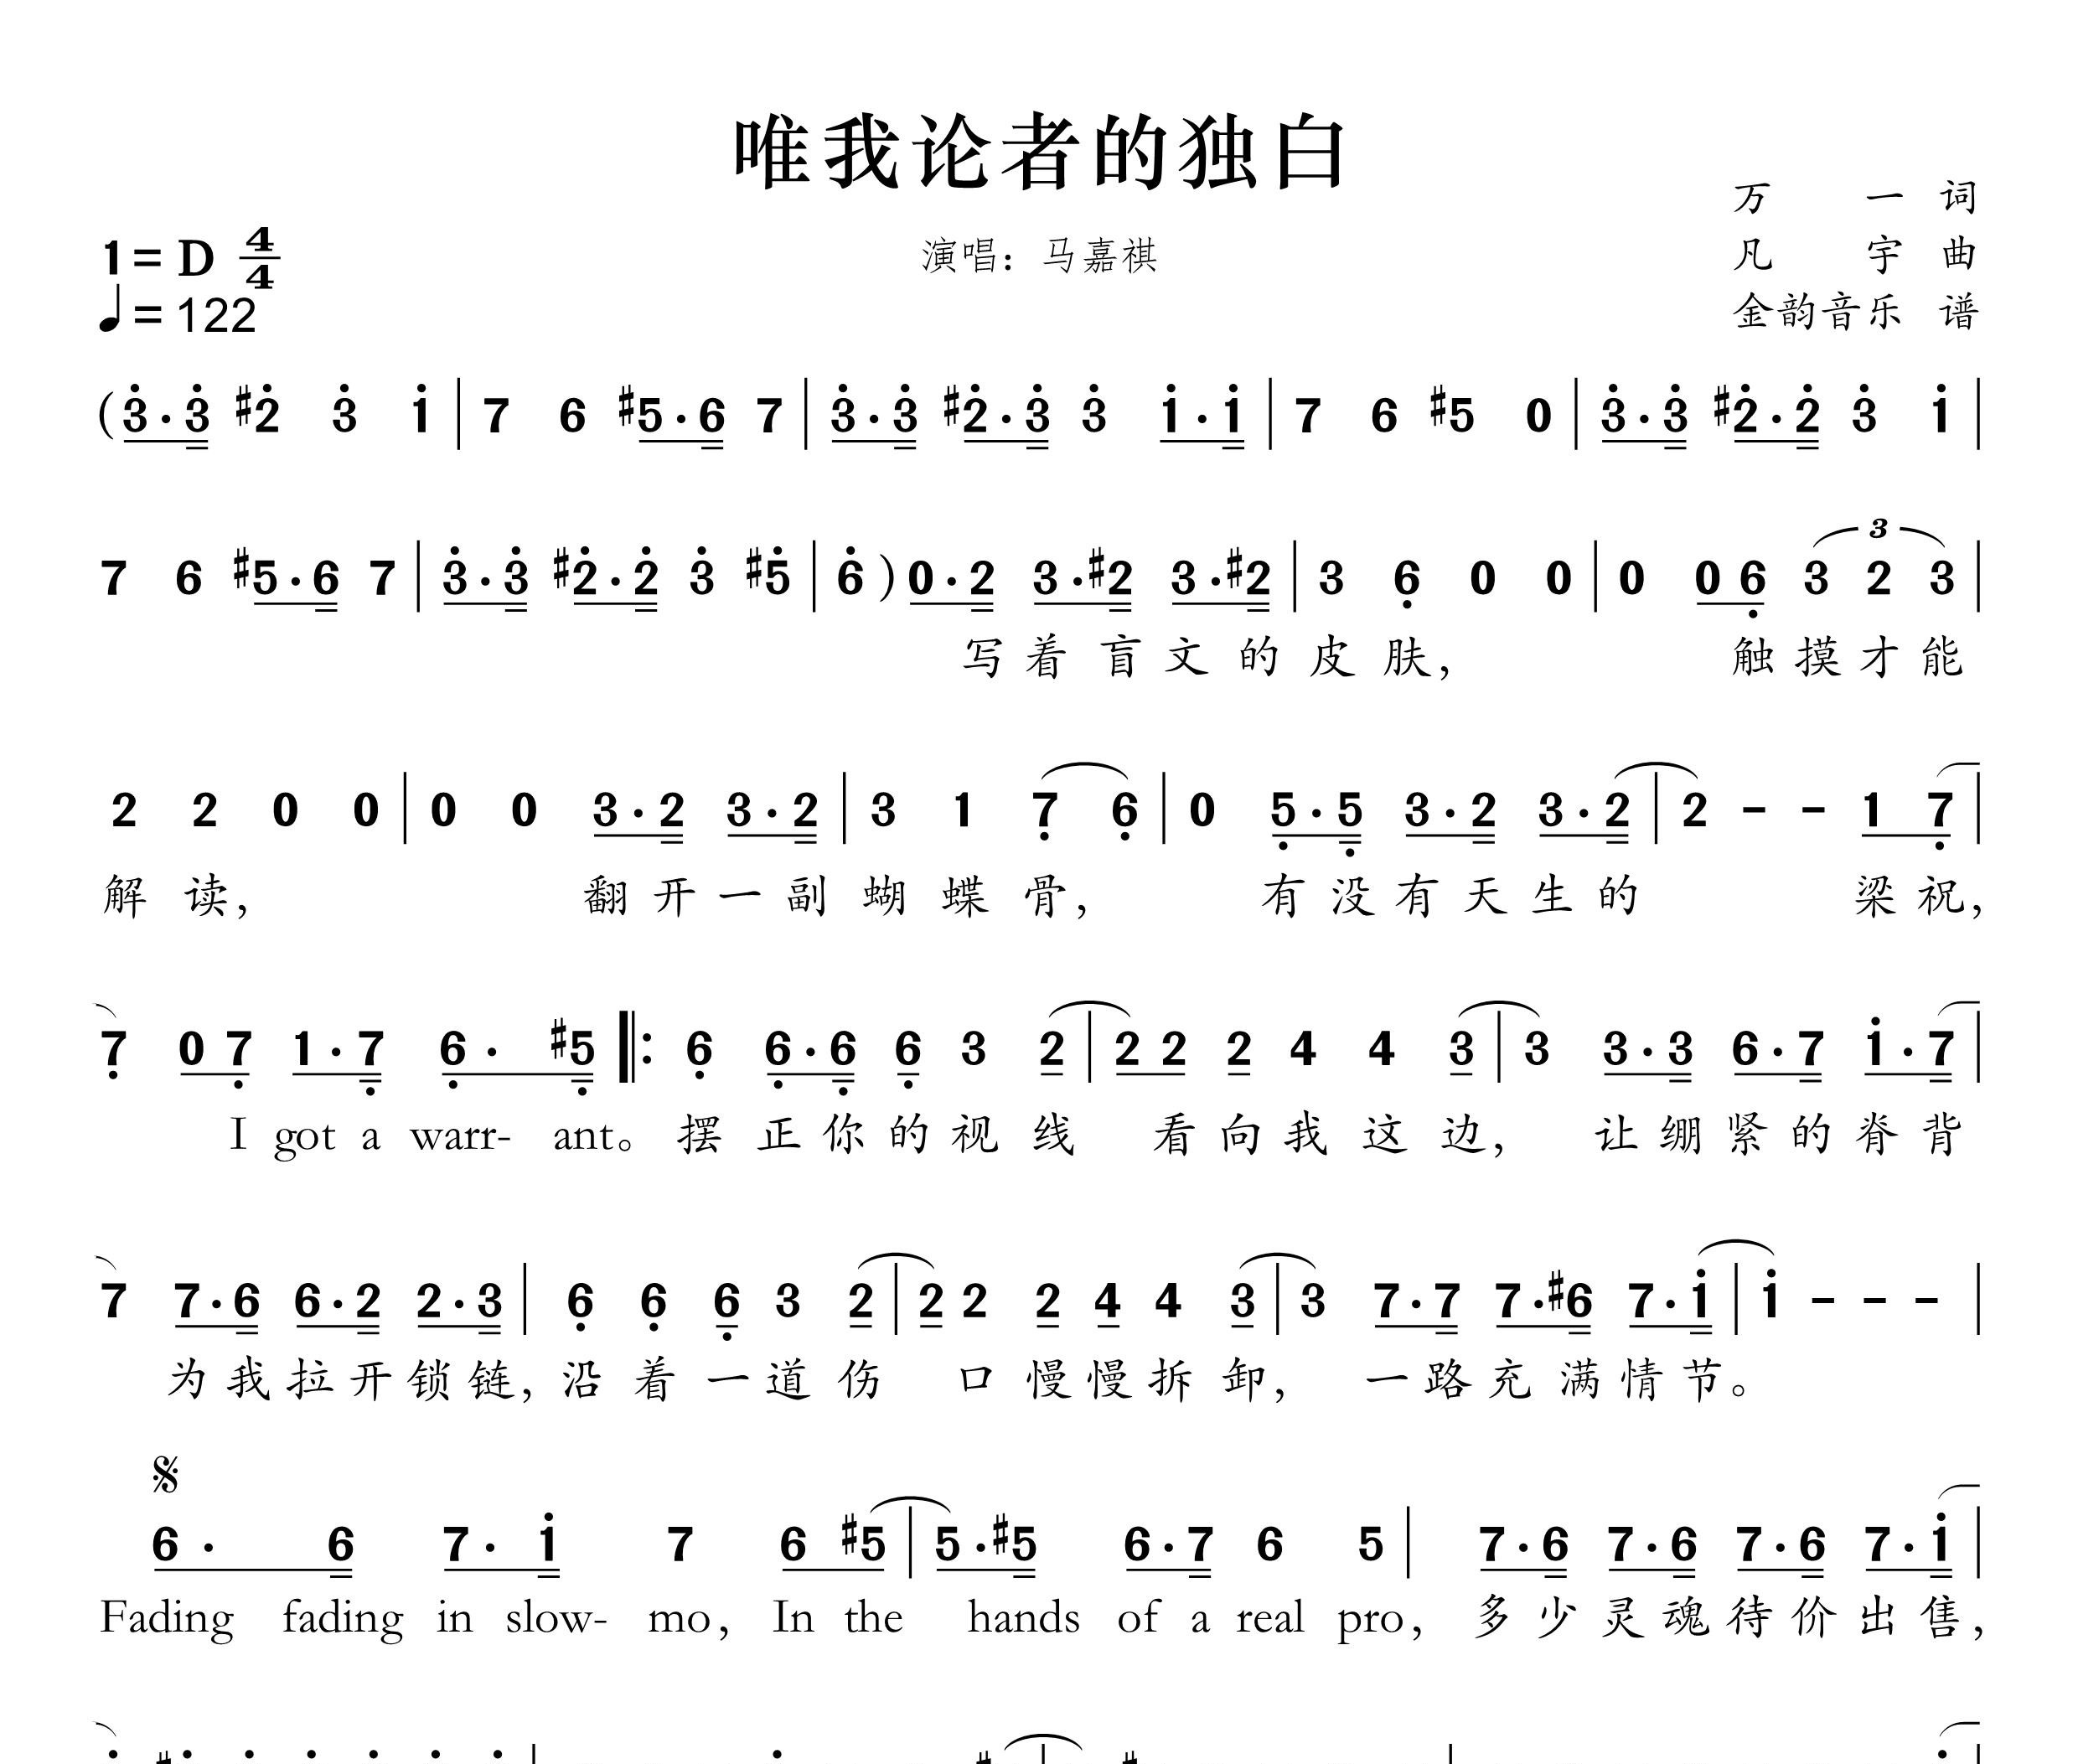 唯我论者的独白
万 一 词
1= D 4/4
演唱：马嘉祺
凡 宇 曲
♩= 122
金韵音乐 谱
(3̇·3̇ #2̇ 3̇ 1̇ | 7 6 #5·6 7 | 3̇·3̇ #2̇·3̇ 3̇ 1̇·1̇ | 7 6 #5 0 | 3̇·3̇ #2̇·2̇ 3̇ 1̇ |
7 6 #5·6 7 | 3̇·3̇ #2̇·2̇ 3̇ #5̇ | 6̇ ) 0·2 3·#2 3·#2 | 3 6̣ 0 0 | 0 0 6̣ 3 2 3 |
3
写着盲文的皮肤， 触摸才能
2 2 0 0 | 0 0 3·2 3·2 | 3 1 7̣ 6̣ | 0 5̣·5̣ 3·2 3·2 | 2 - - 1 7̣ |
解读， 翻开一副蝴蝶骨， 有没有天生的 梁祝，
7̣ 0 7̣ 1·7̣ 6̣· #5̣ |: 6̣ 6̣·6̣ 6̣ 3 2 | 2 2 2 4 4 3 | 3 3·3 6·7 1̇·7 |
I got a warr- ant。摆正你的视线 看向我这边， 让绷紧的脊背
7 7·6 6·2 2·3 | 6̣ 6̣ 6̣ 3 2 | 2 2 2 4 4 3 | 3 7·7 7·#6 7·1̇ | 1̇ - - - |
为我拉开锁链，沿着一道伤 口慢慢拆卸， 一路充满情节。
6· 6 7· 1̇ 7 6 #5 | 5·#5 6·7 6 5 | 7·6 7·6 7·6 7·1̇ |
Fading fading in slow- mo，In the hands of a real pro，多少灵魂待价出售，